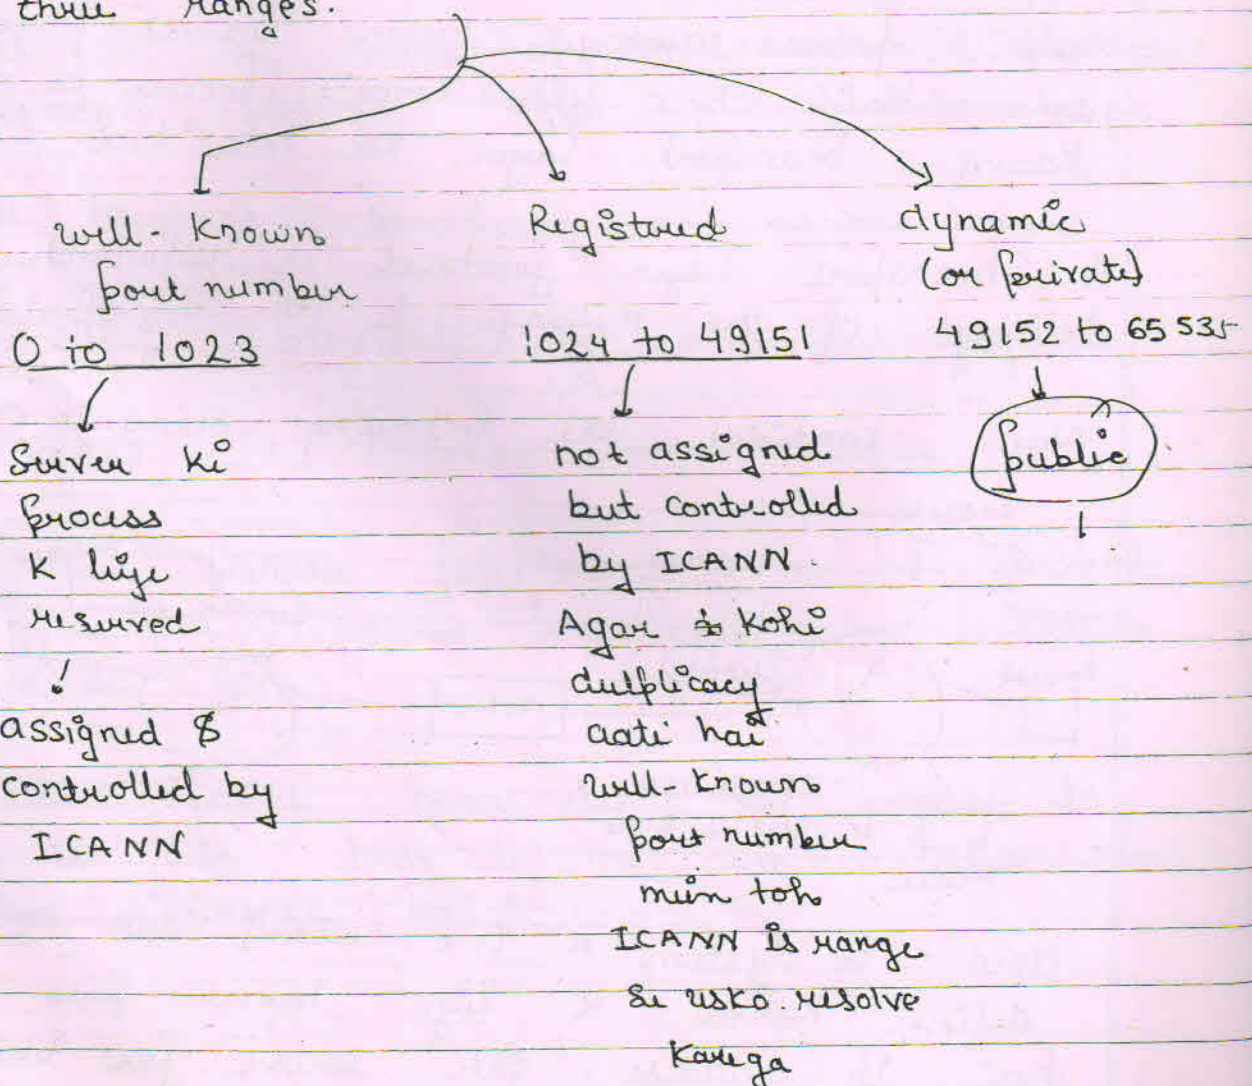 three ranges.
well-known
port number
0 to 1023
Server ki
process
K liye
reserved
assigned &
controlled by
ICANN
Registered
1024 to 49151
not assigned
but controlled
by ICANN.
Agar kohi
dulplicacy
aati hai
well-known
port number
mein toh
ICANN is range
se usko resolve
karega
dynamic
(or private)
49152 to 65535
public